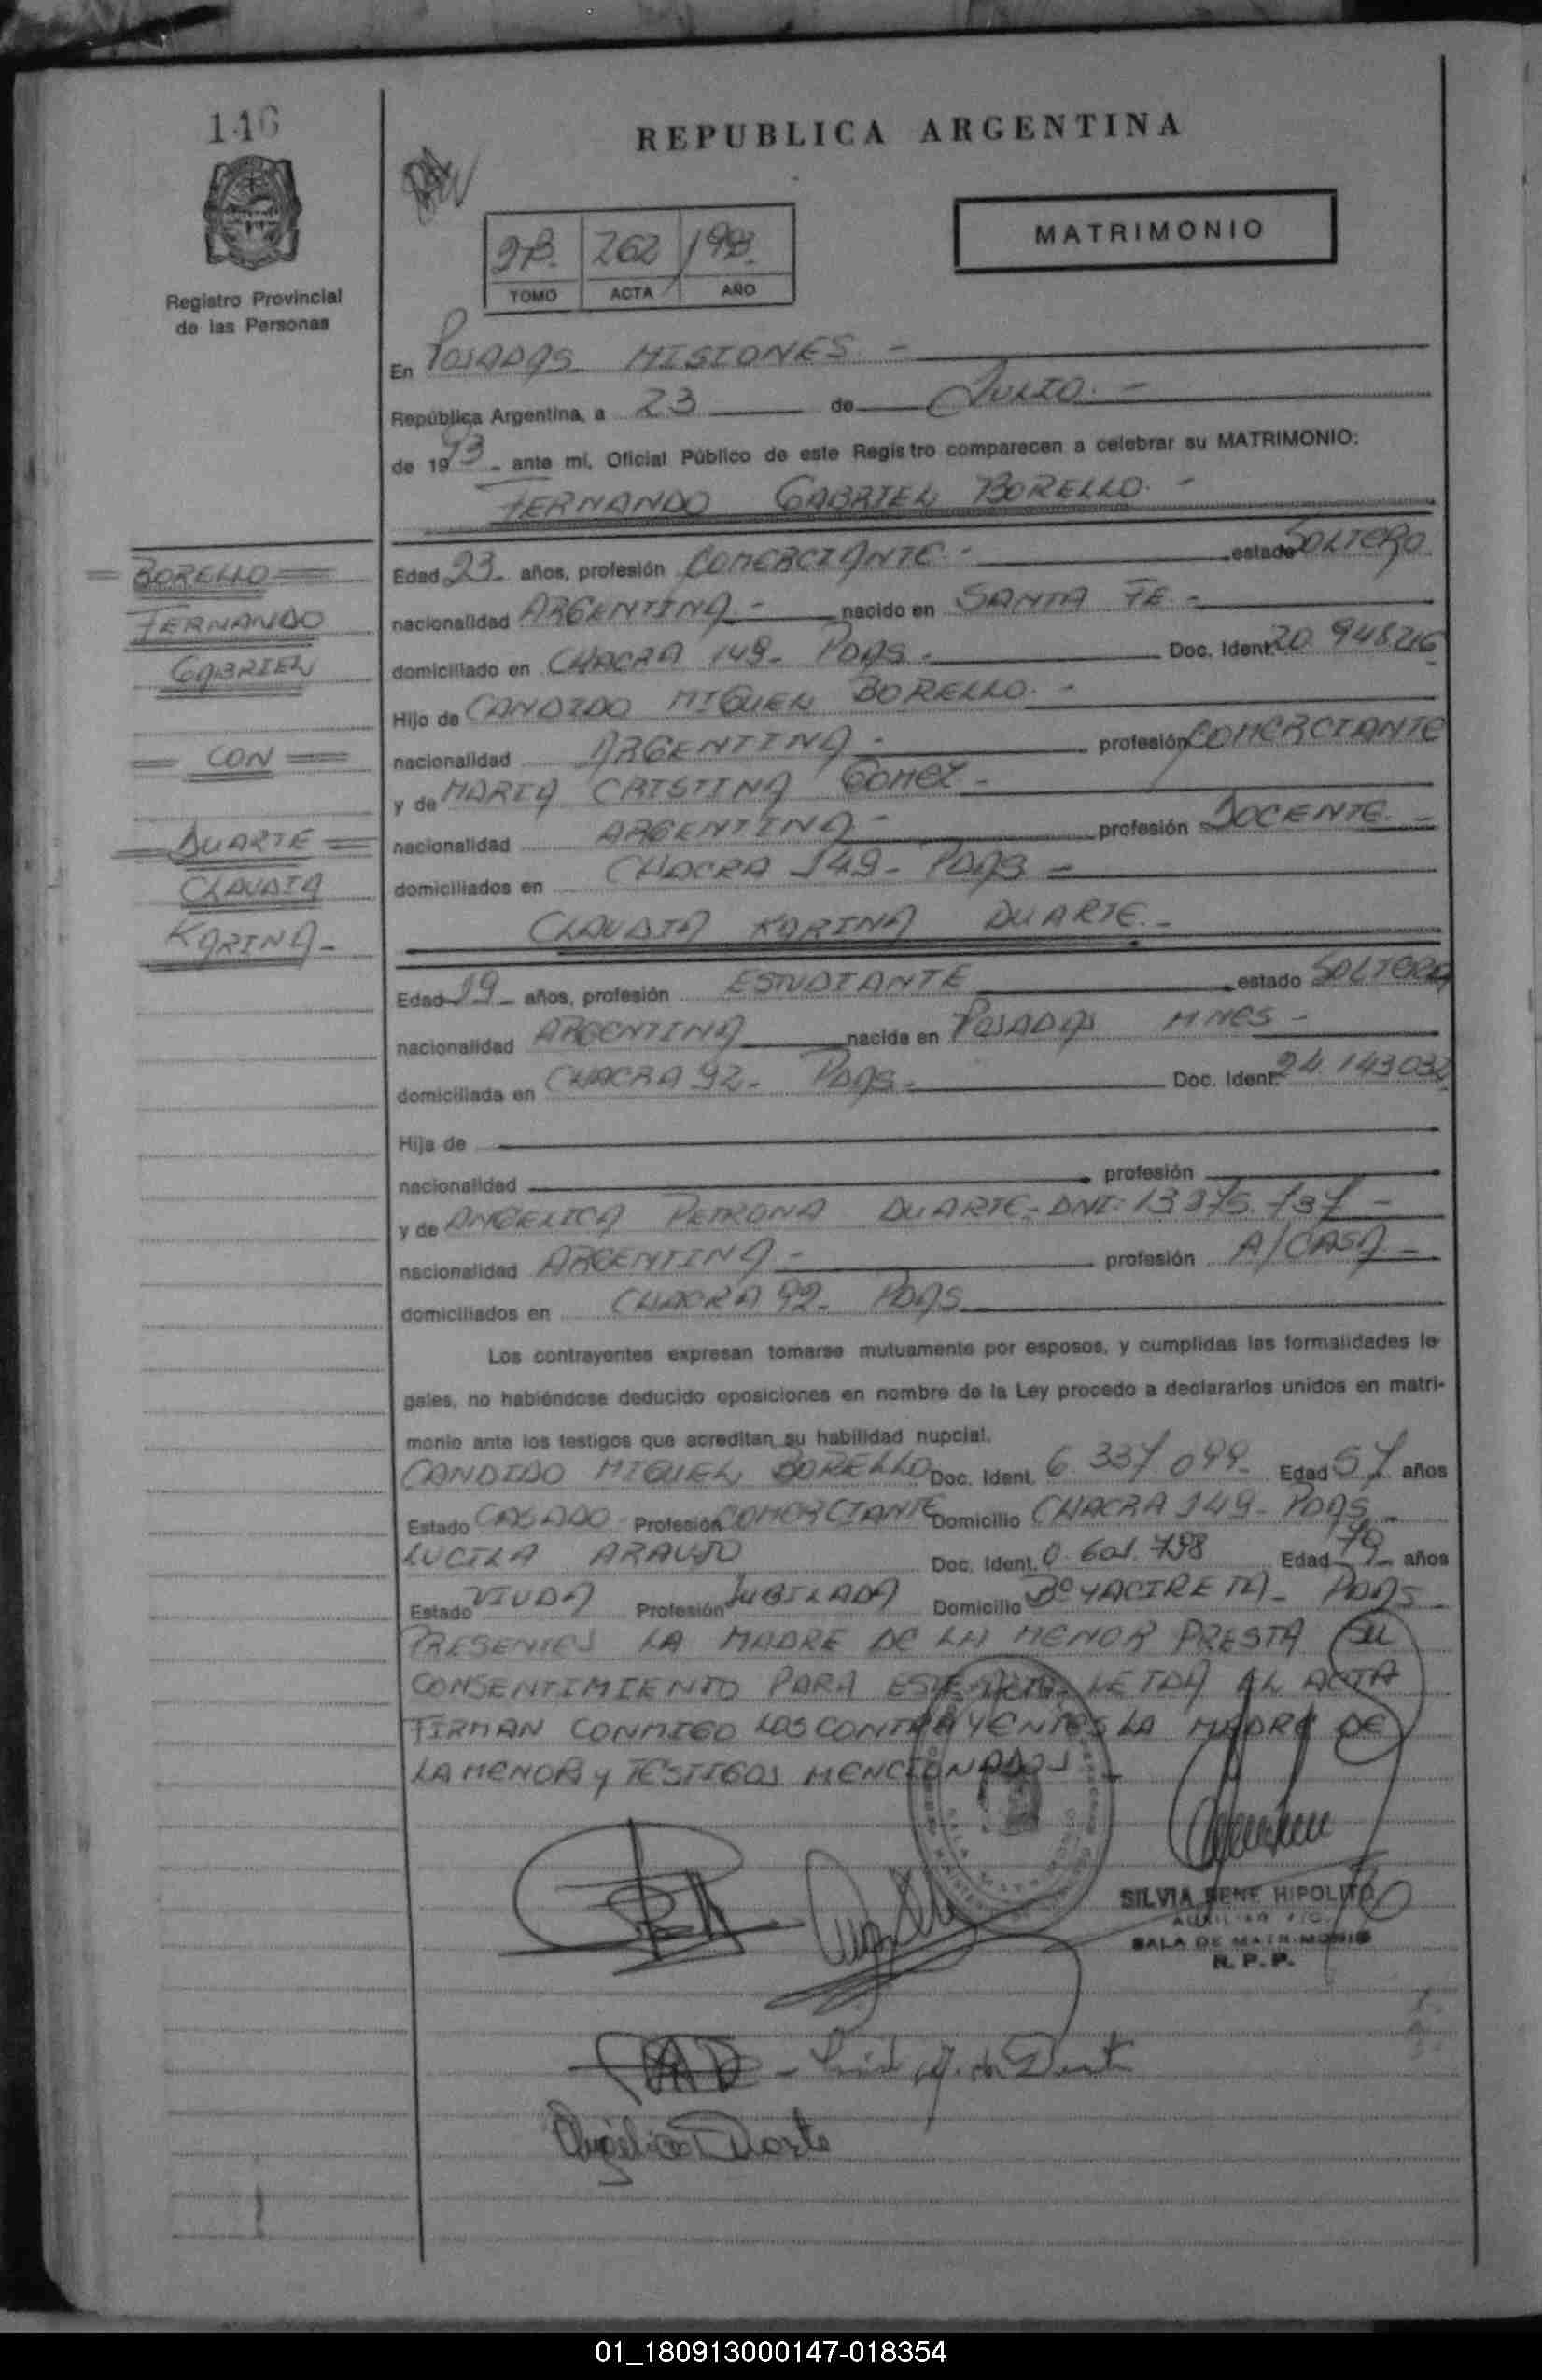 146
REPUBLICA ARGENTINA
MATRIMONIO
262
TOMO ACTA AÑO
Registro Provincial
de las Personas
En POSADAS MISIONES -
República Argentina, a 23 de JULIO. -
de 1993 - ante mí, Oficial Público de este Registro comparecen a celebrar su MATRIMONIO:
FERNANDO GABRIEL BORELLO. -
= BORELLO =
FERNANDO
GABRIEL
= CON =
= DUARTE =
CLAUDIA
KARINA -
Edad 23 - años, profesión COMERCIANTE - estado SOLTERO
nacionalidad ARGENTINA - nacido en SANTA FE -
domiciliado en CHACRA 149 - PDAS - Doc. Ident. 20.948216
Hijo de CANDIDO MIGUEL BORELLO. -
nacionalidad ARGENTINA - profesión COMERCIANTE
y de MARIA CRISTINA GOMEZ -
nacionalidad ARGENTINA - profesión DOCENTE. -
domiciliados en CHACRA 149 - PDAS -
CLAUDIA KARINA DUARTE. -
Edad 19 - años, profesión ESTUDIANTE estado SOLTERA
nacionalidad ARGENTINA nacida en POSADAS MNES -
domiciliada en CHACRA 92 - PDAS - Doc. Ident. 24.143032
Hija de
nacionalidad profesión
y de ANGELICA PETRONA DUARTE - DNI: 13.375.737 -
nacionalidad ARGENTINA - profesión A/CASA -
domiciliados en CHACRA 92 - PDAS
Los contrayentes expresan tomarse mutuamente por esposos, y cumplidas las formalidades le-
gales, no habiéndose deducido oposiciones en nombre de la Ley procedo a declararlos unidos en matri-
monio ante los testigos que acreditan su habilidad nupcial.
CANDIDO MIGUEL BORELLO Doc. Ident. 6.337.099 - Edad 57 años
Estado CASADO - Profesión COMERCIANTE Domicilio CHACRA 149 - PDAS -
LUCILA ARAUJO Doc. Ident. 0.601.798 Edad 79 - años
Estado VIUDA Profesión JUBILADA Domicilio Bº YACIRETA - PDAS -
PRESENTES LA MADRE DE LA MENOR PRESTA SU
CONSENTIMIENTO PARA ESTE ACTO - LEIDA EL ACTA
FIRMAN CONMIGO LOS CONTRAYENTES LA MADRE DE
LA MENOR y TESTIGOS MENCIONADOS -
SILVIA RENE HIPOLITO
SALA DE MATRIMONIO
R. P. P.
Angélica Duarte
01_180913000147-018354